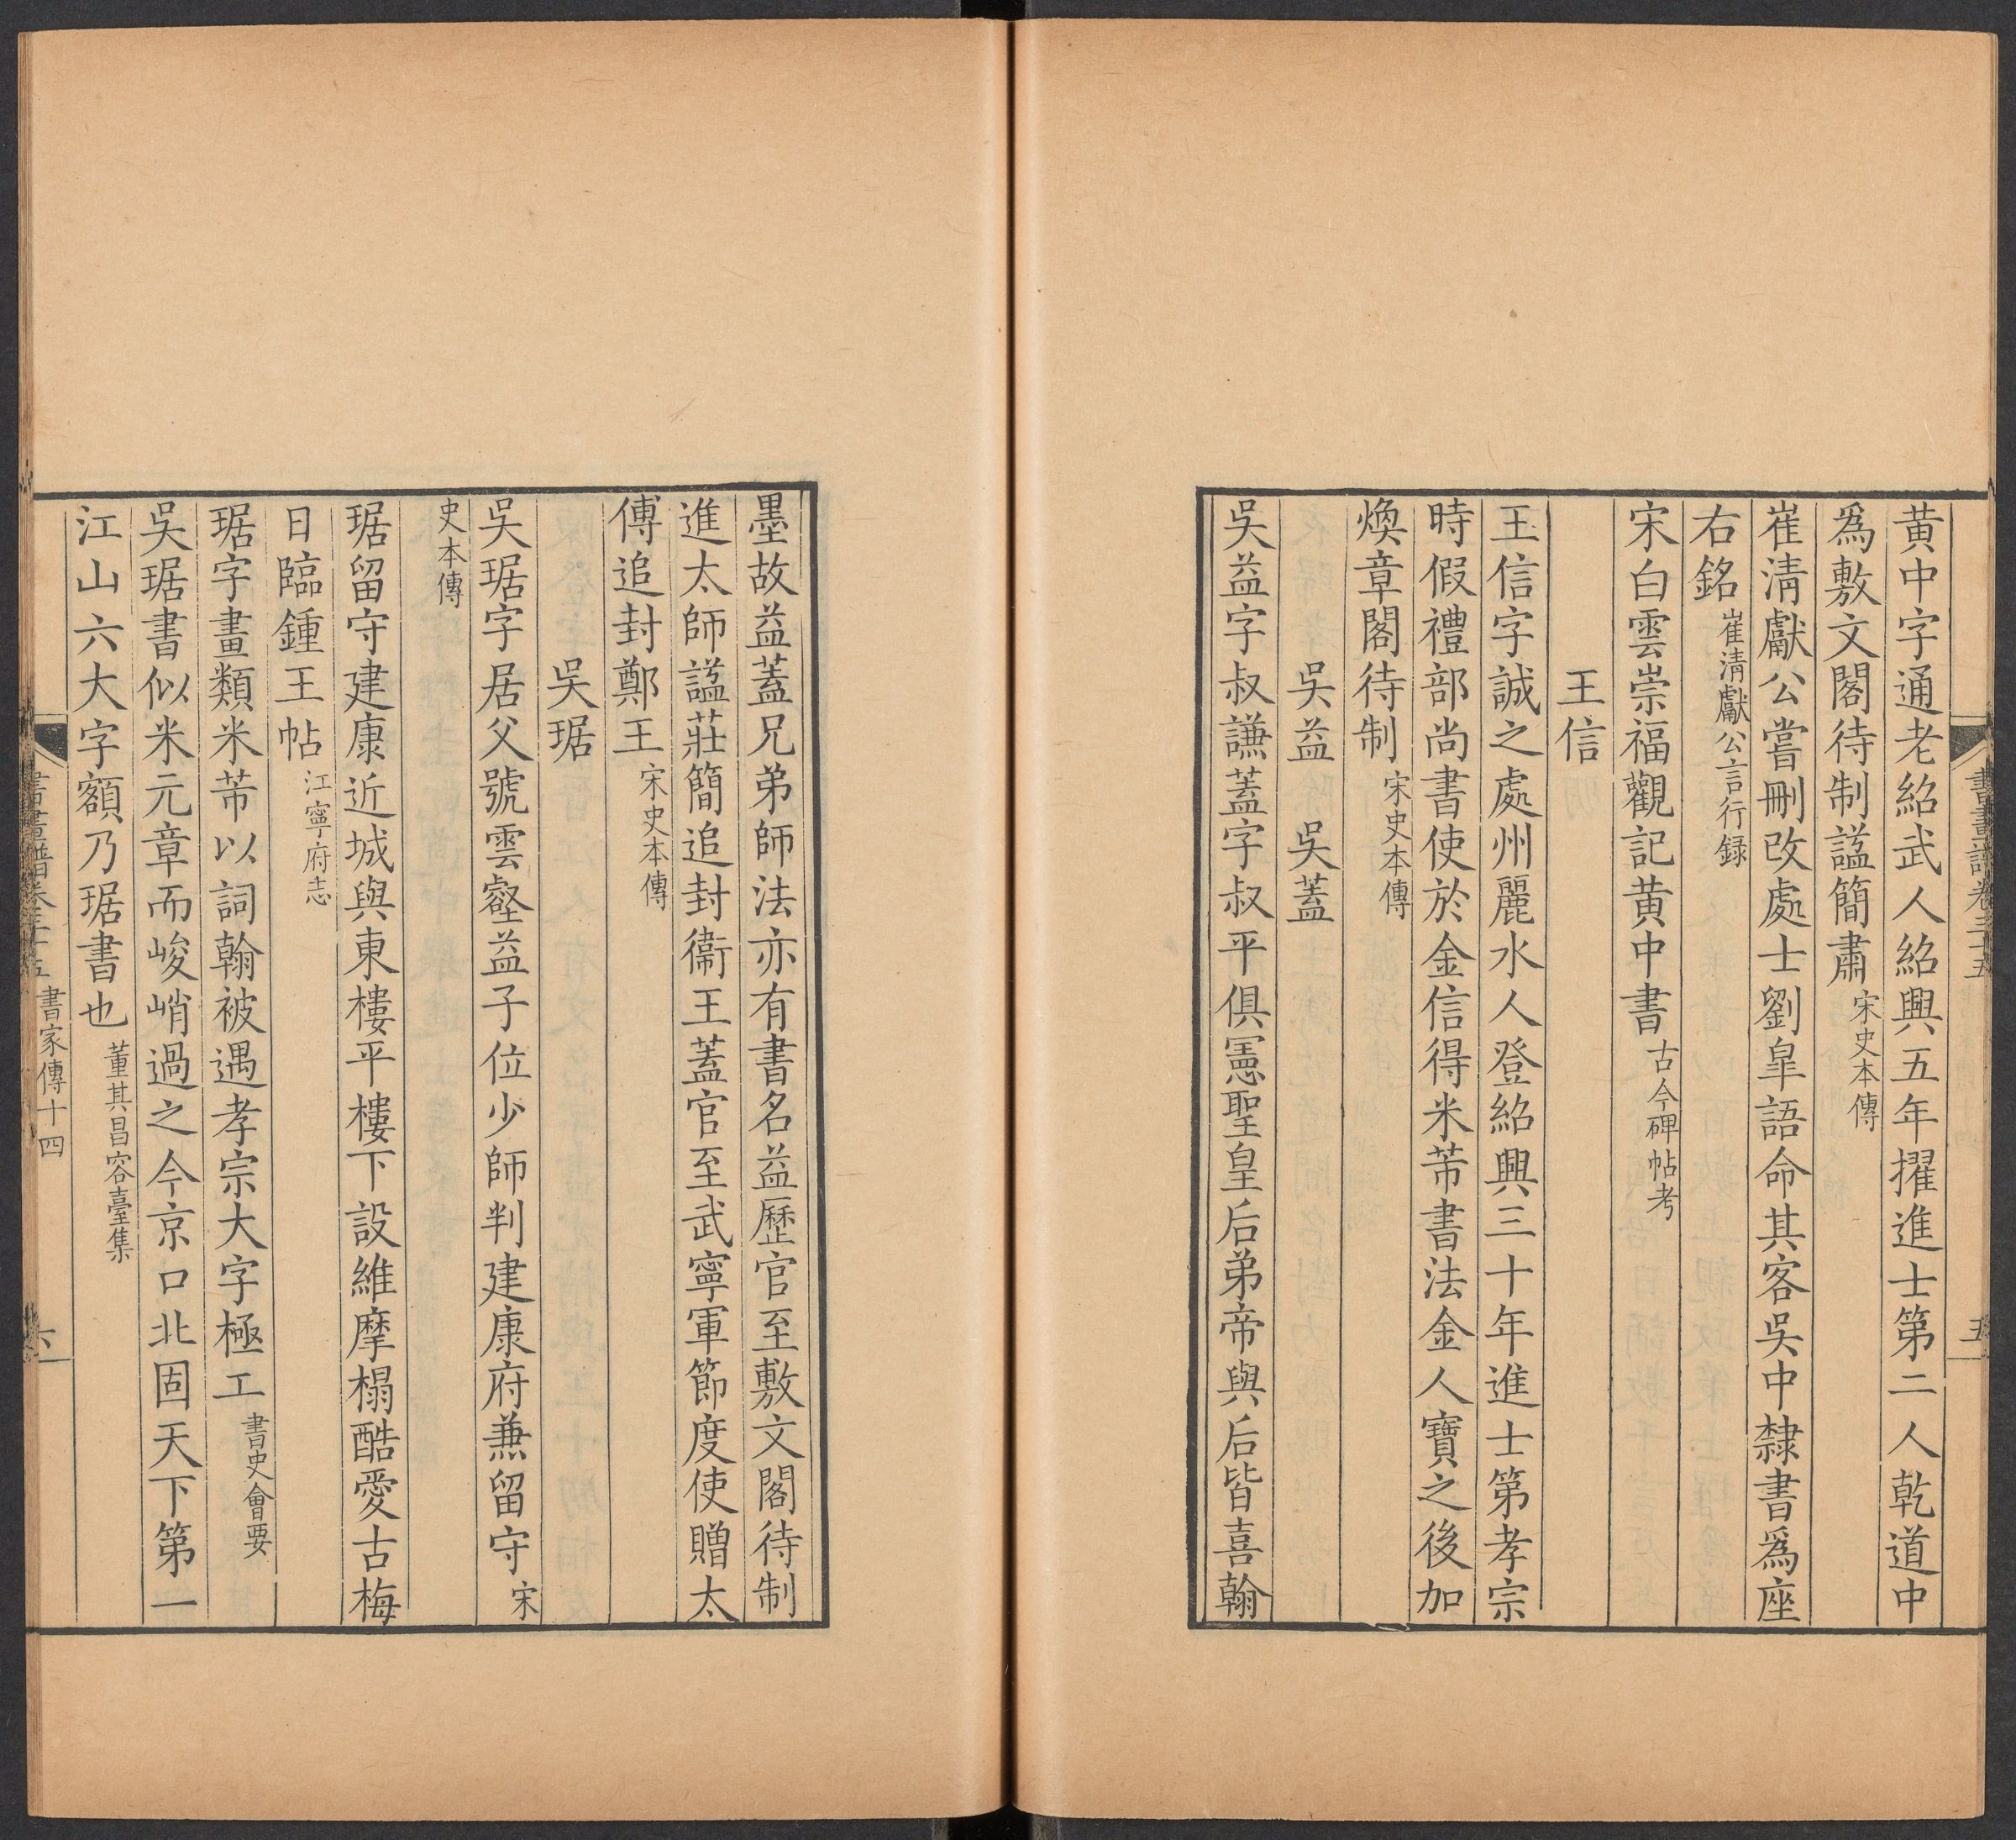 黄中字通老紹武人紹興五年擢進士第二人乾道中
爲敷文閣待制謚簡肅 宋史本傳
崔淸獻公嘗刪改處士劉臯語命其客吳中隸書爲座
右銘 崔淸獻公言行録
宋白雲崇福觀記黄中書 古今碑帖考
王信
王信字誠之處州麗水人登紹興三十年進士第孝宗
時假禮部尚書使於金信得米芾書法金人寶之後加
煥章閣待制 宋史本傳
吳益 吳蓋
吳益字叔謙蓋字叔平俱憲聖皇后弟帝與后皆喜翰
書畫譜卷三十五
五
墨故益蓋兄弟師法亦有書名益歷官至敷文閣待制
進太師謚莊簡追封衞王蓋官至武寧軍節度使贈太
傅追封鄭王 宋史本傳
吳琚
吳琚字居父號雲壑益子位少師判建康府兼留守 宋
史本傳
琚留守建康近城與東樓平樓下設維摩榻酷愛古梅
日臨鍾王帖 江寧府志
琚字畫類米芾以詞翰被遇孝宗大字極工 書史會要
吳琚書似米元章而峻峭過之今京口北固天下第一
江山六大字額乃琚書也 董其昌容臺集
書畫譜卷三十五 書家傳十四
六